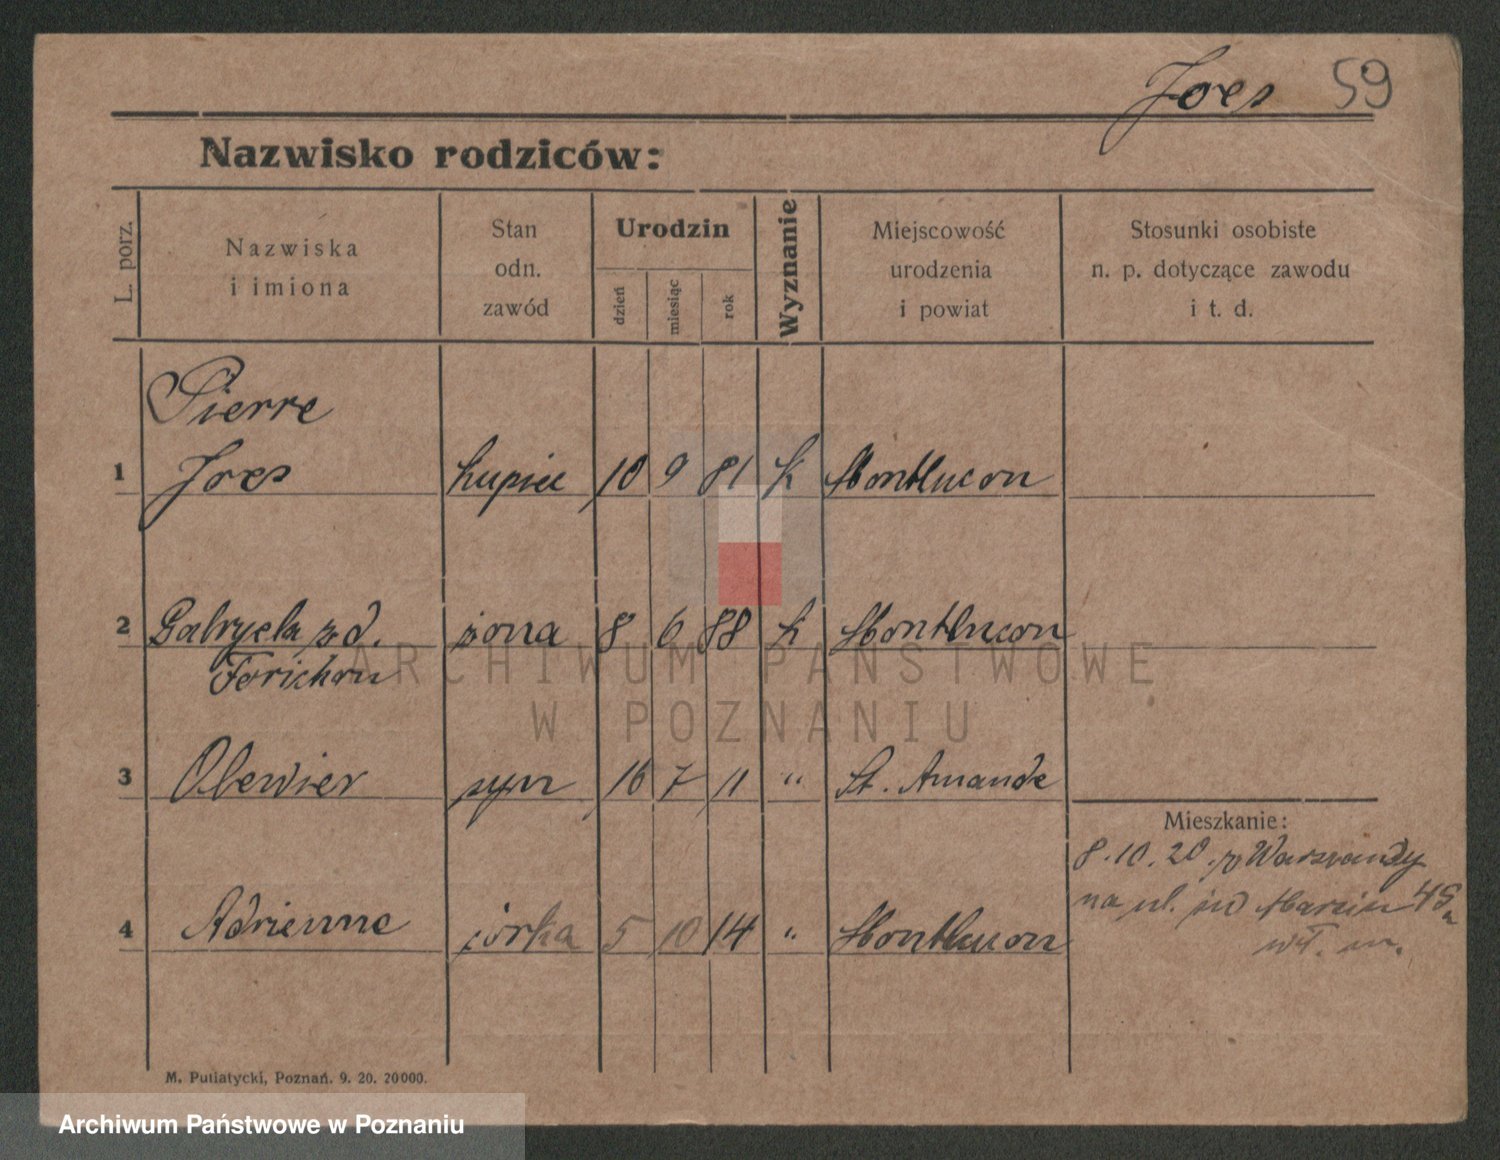 Joes 59
Nazwisko rodziców:
L. porz.
Nazwiska
i imiona
Stan
odn.
zawód
Urodzin
dzień
miesiąc
rok
Wyznanie
Miejscowość
urodzenia
i powiat
Stosunki osobiste
n. p. dotyczące zawodu
i t. d.
Pierre
1 Joes kupiec 10 9 81 k Montlucon
2 Gabryela zd. żona 8 6 88 k Montlucon
Forichon
3 syn 16 7 11 " St. Amande
Mieszkanie:
8.10.20. z Warszawy
na ul. św Marcin 45a
wł. m.
4 Adrienne córka 5 10 14 " Montlucon
M. Putiatycki, Poznań. 9. 20. 20000.
ARCHIWUM PAŃSTWOWE
W POZNANIU
Archiwum Państwowe w Poznaniu